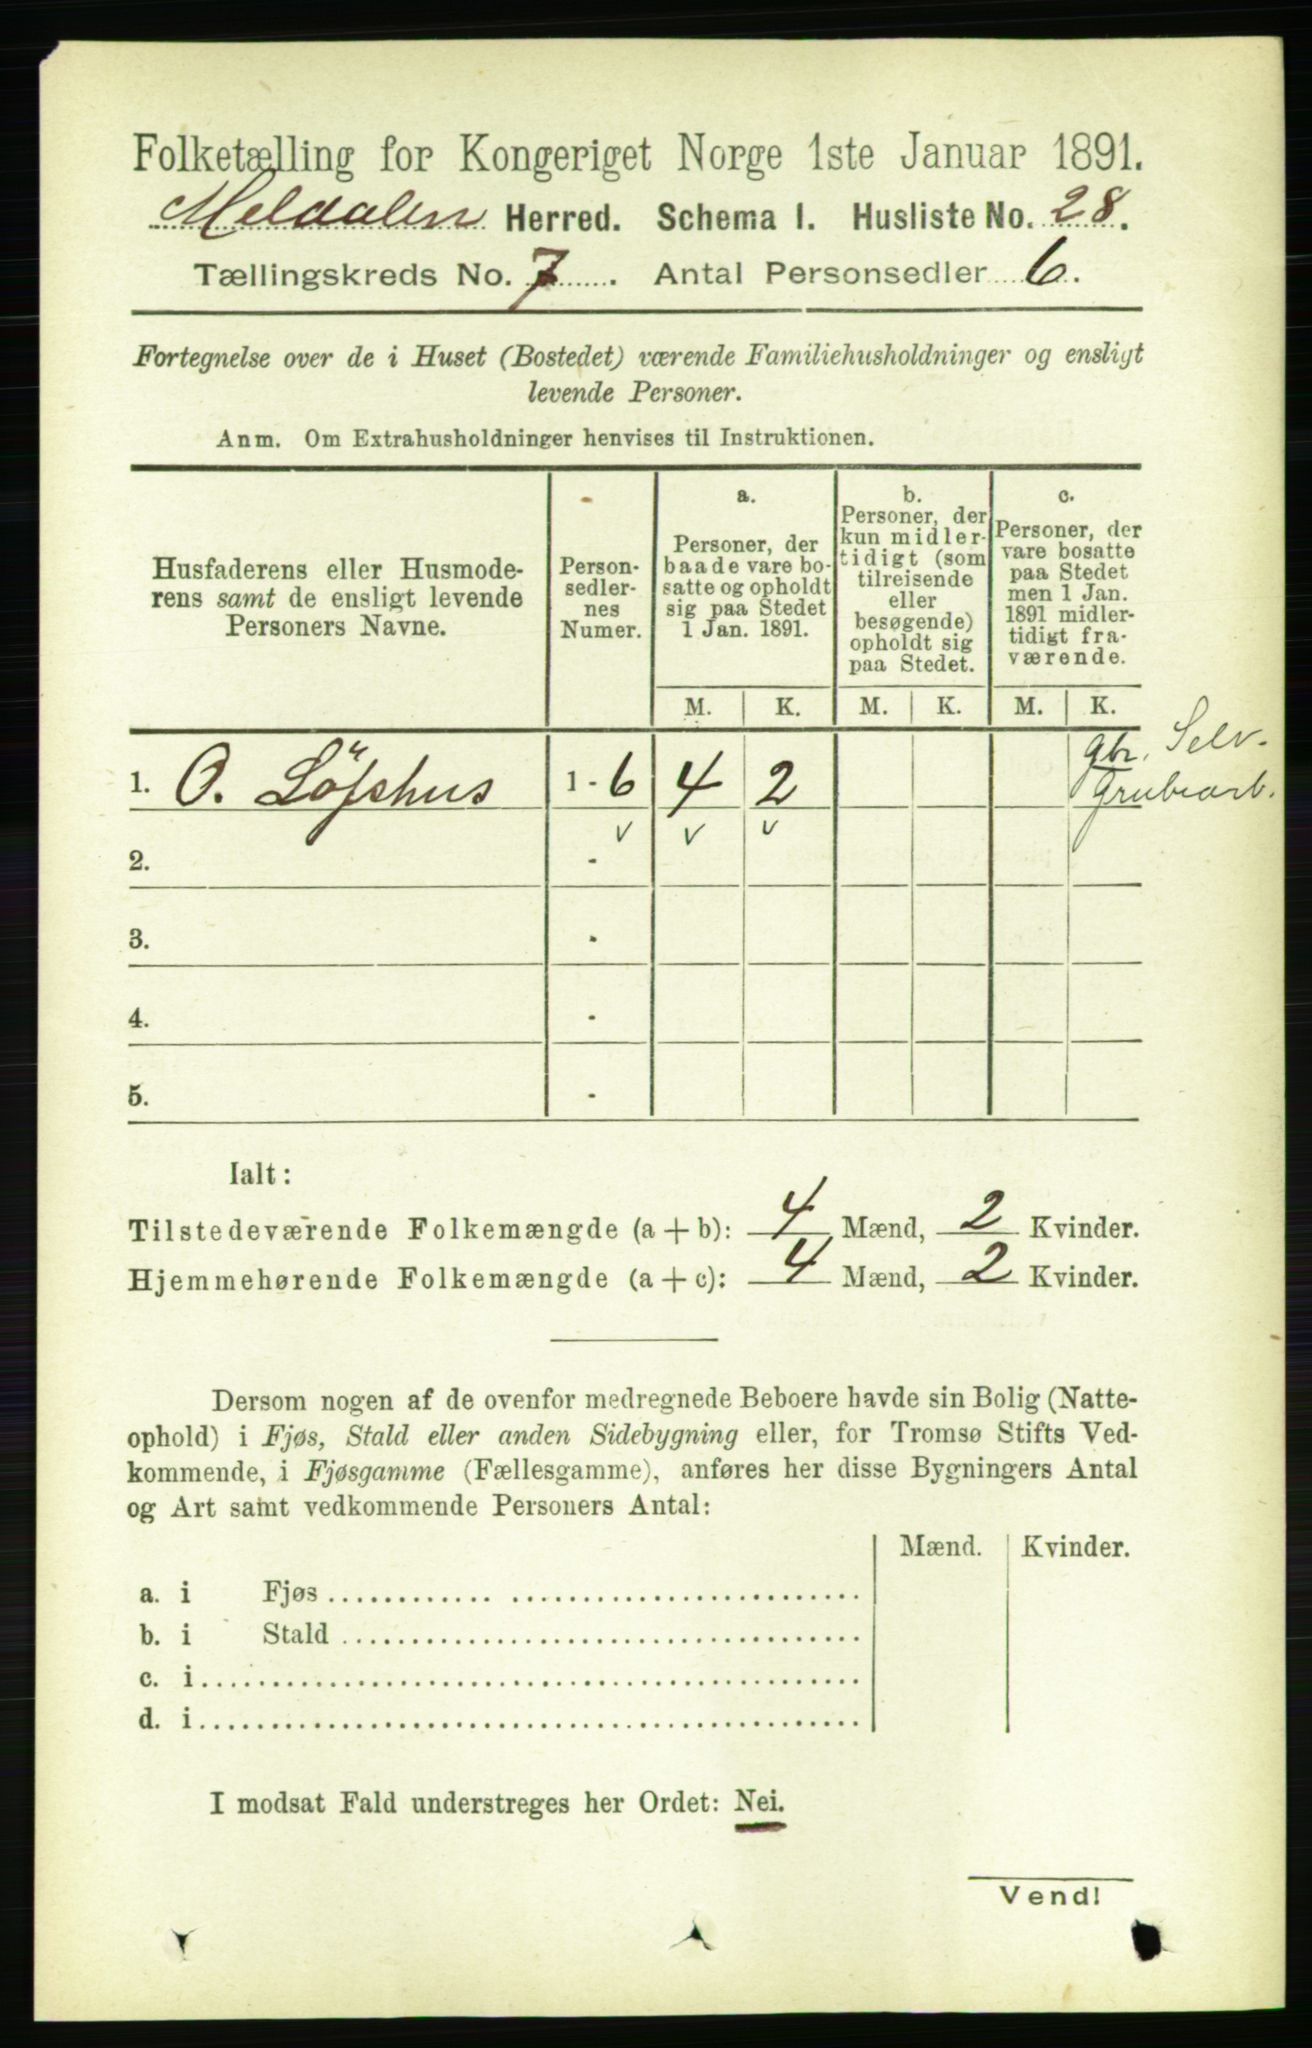 Folketælling for Kongeriget Norge 1ste Januar 1891.
Meldalen Herred. Schema I. Husliste No. 28.
Tællingskreds No. 7. Antal Personsedler 6.
Fortegnelse over de i Huset (Bostedet) værende Familiehusholdninger og ensligt
levende Personer.
Anm. Om Extrahusholdninger henvises til Instruktionen.
Husfaderens eller Husmode-
rens samt de ensligt levende
Personers Navne.
Person-
sedler-
nes
Numer.
a.
Personer, der
baade vare bo-
satte og opholdt
sig paa Stedet
1 Jan. 1891.
b.
Personer, der
kun midler-
tidigt (som
tilreisende
eller
besøgende)
opholdt sig
paa Stedet.
c.
Personer, der
vare bosatte
paa Stedet
men 1 Jan.
1891 midler-
tidigt fra-
værende.
M. K. M. K. M. K.
gbr. Selv.
1. O. Löfshus 1 - 6 4 2 Grubearb.
v v v
2. -
3. -
4. -
5. -
Ialt:
Tilstedeværende Folkemængde (a + b): 4 Mænd, 2 Kvinder.
Hjemmehørende Folkemængde (a + c): 4 Mænd, 2 Kvinder.
Dersom nogen af de ovenfor medregnede Beboere havde sin Bolig (Natte-
ophold) i Fjøs, Stald eller anden Sidebygning eller, for Tromsø Stifts Ved-
kommende, i Fjøsgamme (Fællesgamme), anføres her disse Bygningers Antal
og Art samt vedkommende Personers Antal:
Mænd. Kvinder.
a. i Fjøs
b. i Stald
c. i
d. i
I modsat Fald understreges her Ordet: Nei.
Vend!